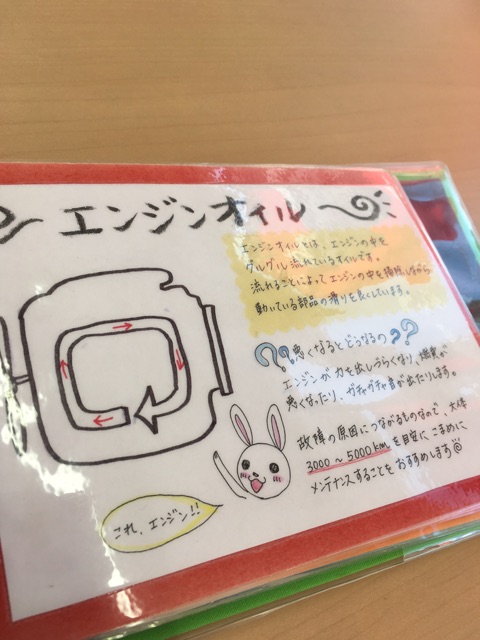 エンジンオイル
エンジンオイルとは、エンジンの中を
グルグル流れているオイルです。
流れることによってエンジンの中を掃除しながら
動いている部品の滑りを良くしています。
??悪くなるとどうなるの??
エンジンが力を出しづらくなり、燃費が
悪くなったり、ガチャガチャ音が出たりします。
故障の原因につながるものなので、大体
3000～5000kmを目安にこまめに
メンテナンスすることをおすすめします
これ、エンジン!!